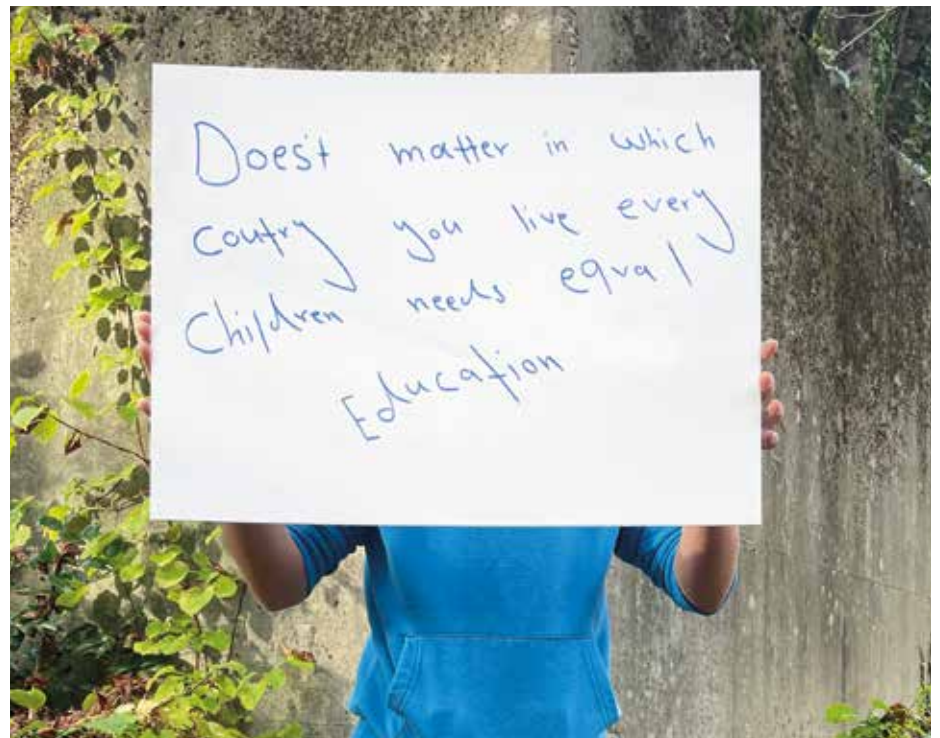 Does't matter in which
coutry you live every
Children needs equal
Education